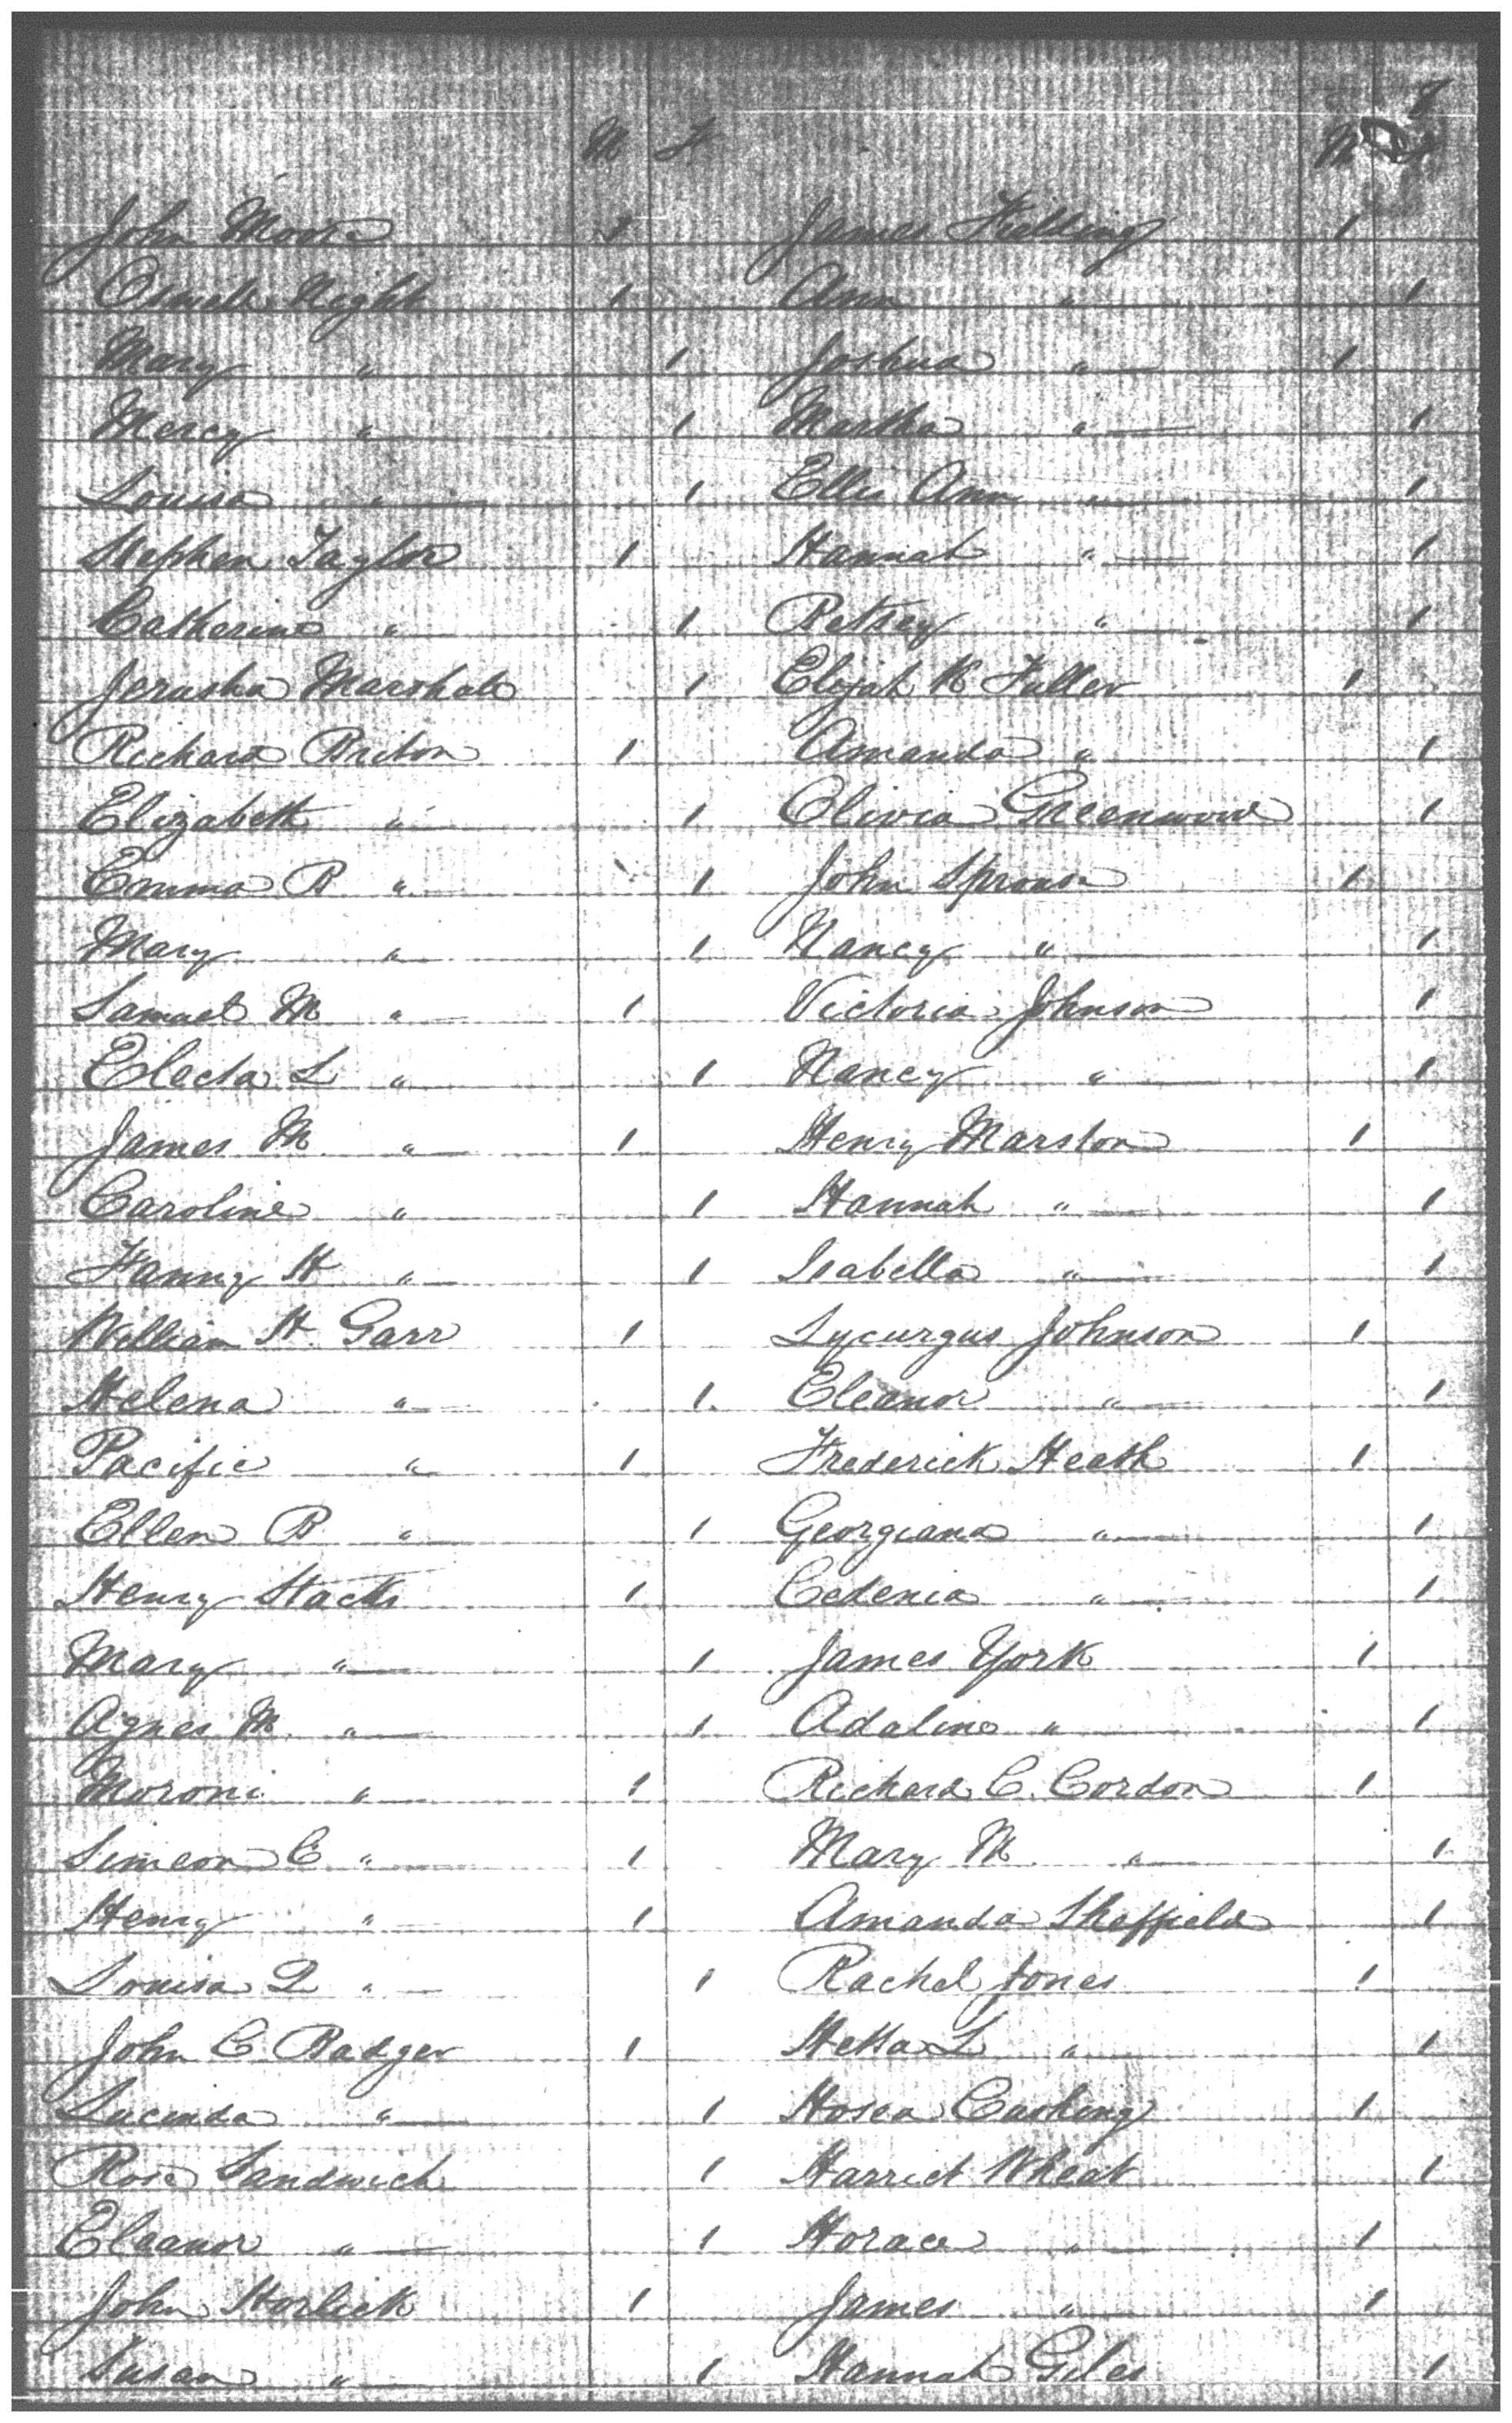 M F M F
John Moore 1 James Fielding 1
Night 1 Ann " 1
Mary " 1 Joshua " 1
Mercy " 1 Martha " 1
Louisa " 1 Ellis Ann " 1
Stephen Taylor 1 Hannah " 1
Catherine " 1 Betsey " 1
Jerusha Marshall 1 Elijah K Fuller 1
Richard Briton 1 Amanda " 1
Elizabeth " 1 Olivia Greenwood 1
Emma B " 1 John Sprouse 1
Mary " 1 Nancy " 1
Samuel M " 1 Victoria Johnson 1
Electa L " 1 Nancy " 1
James M " 1 Henry Marston 1
Caroline " 1 Hannah " 1
Fanny H " 1 Isabella " 1
William H. Garr 1 Lycurgus Johnson 1
Helena " 1 Eleanor " 1
Pacific " 1 Frederick Heath 1
Ellen B " 1 Georgiana " 1
Henry Stacks 1 Cedenia " 1
Mary " 1 James York 1
Agnes M. " 1 Adaline " 1
Moroni " 1 Richard C. Cordon 1
Simeon E " 1 Mary M " 1
Henry " 1 Amanda Sheffield 1
Louisa Q " 1 Rachel Jones 1
John C. Badger 1 L " 1
Lucinda " 1 Hosea Cushing 1
Rose Sandwich 1 Harriet Wheat 1
Eleanor " 1 Horace " 1
John Horlick 1 James " 1
Susan " 1 Hannah Giles 1